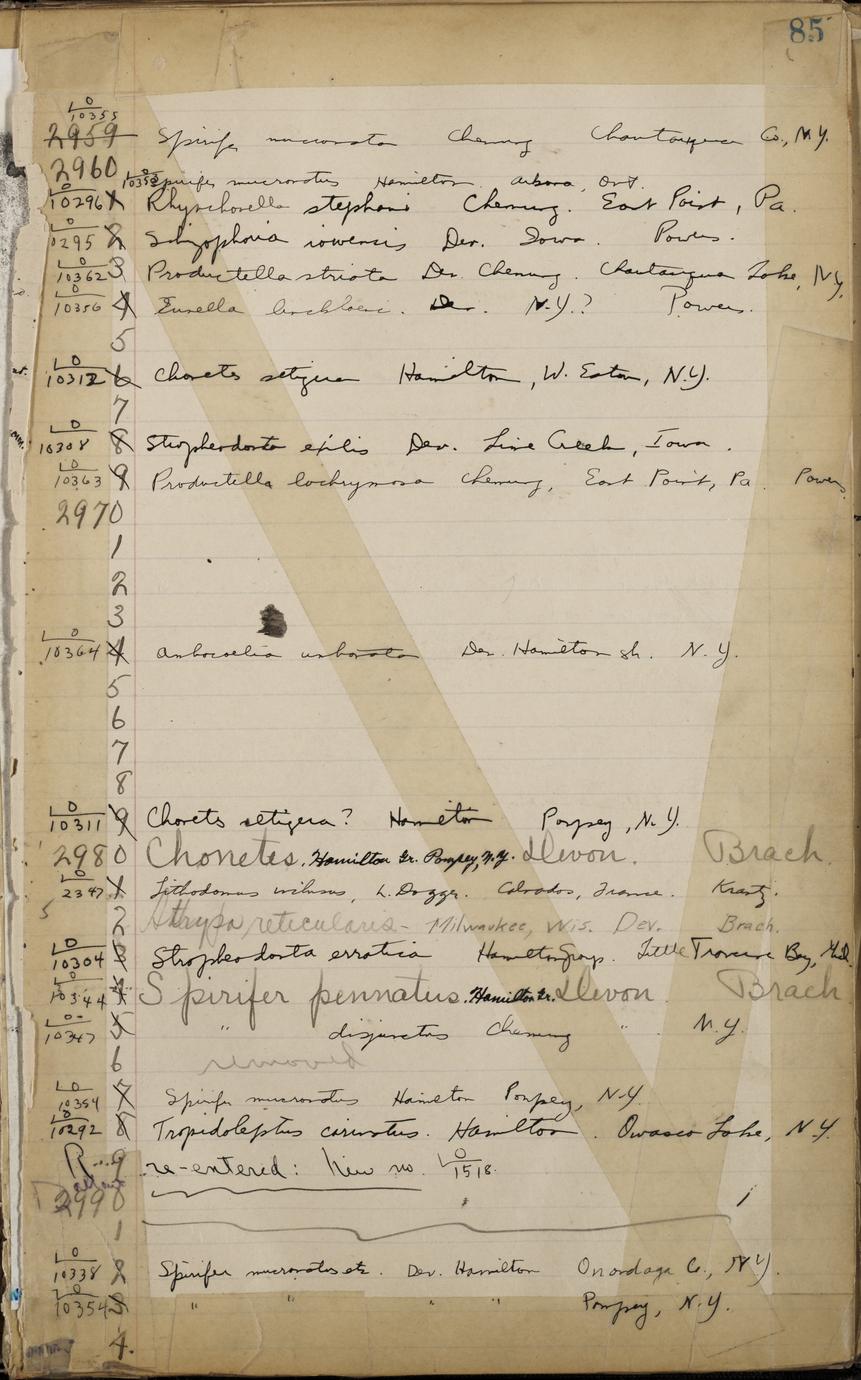 85
LO/10355
2959 Spirifer mucronata Chemung Chautauqua Co., N.Y.
2960 LO/10352 Spirifer mucronatus Hamilton Arkona, Ont.
LO/10296 1 Rhynchonella stephani Chemung. East Point, Pa.
LO/295 2 Schizophoria iowensis Dev. Iowa. Powers.
LO/10362 3 Productella striata Dev. Chemung. Chautauqua Lake, N.Y.
LO/10356 4 Dev. N.Y.? Powers.
5
LO/10312 6 Chonetes setigera Hamilton, W. Eaton, N.Y.
7
LO/10308 8 Stropheodonta exilis Dev. Lime Creek, Iowa.
LO/10363 9 Productella lachrymosa Chemung, East Point, Pa. Powers
2970
1
2
3
LO/10364 4 Ambocoelia umbonata Dev. Hamilton sh. N.Y.
5
6
7
8
LO/10311 9 Chonets setigera? Hamilton Pompey, N.Y.
2980 Chonetes. Hamilton Gr. Pompey, N.Y. Devon. Brach.
LO/2347 1 Lithodomus L. Dogger. Calvados, France. Krantz.
5 2 Athypa reticularis - Milwaukee, Wis. Dev. Brach.
LO/10304 3 Stropheodonta erratica Hamilton Group. Little Traverse Bay, Mich.
LO/10344 4 Spirifer pennatus. Hamilton Gr. Devon. Brach
LO/10347 5 " disjunctus Chemung " . N.Y.
6 removed
LO/10354 7 Spirifer mucronatus Hamilton Pompey, N.Y.
LO/10292 8 Tropidoleptus carinatus. Hamilton. Owasco Lake, N.Y.
9 re-entered: New no. LO/1518.
2990
1
LO/10338 2 Spirifer mucronatus etc. Dev. Hamilton Onondaga Co., N.Y.
LO/10354 3 " " " " Pompey, N.Y.
4.